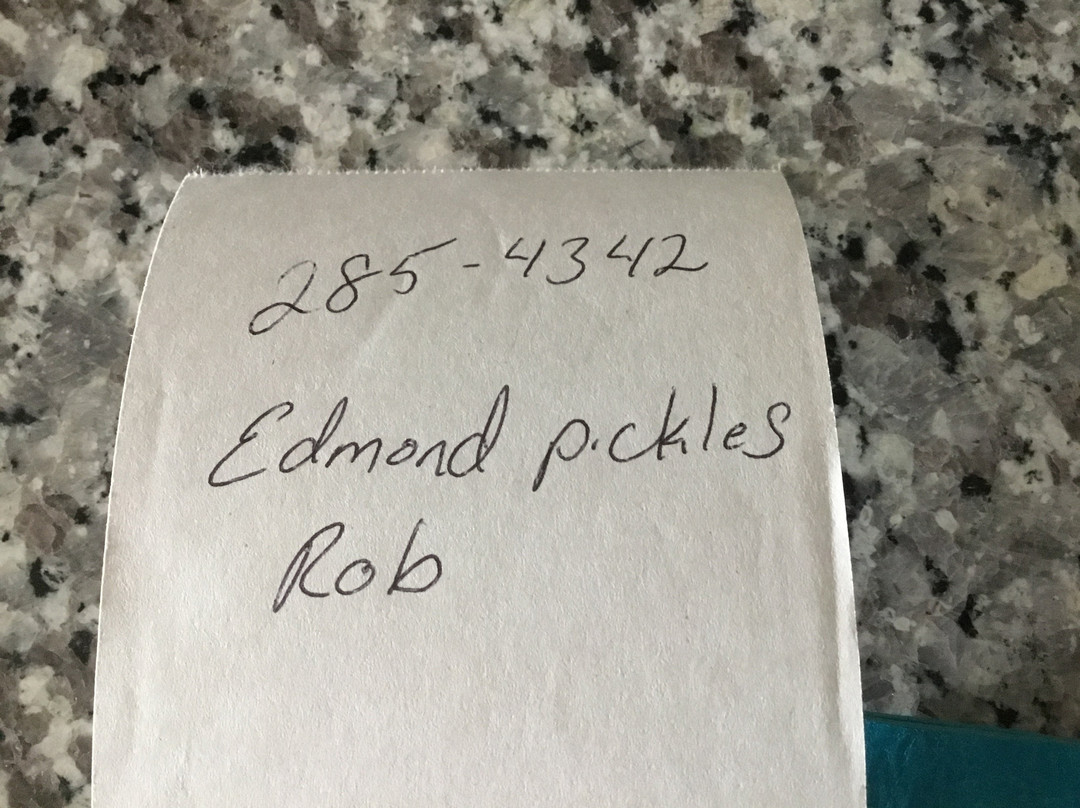 285-4342
Edmond pickles
Rob